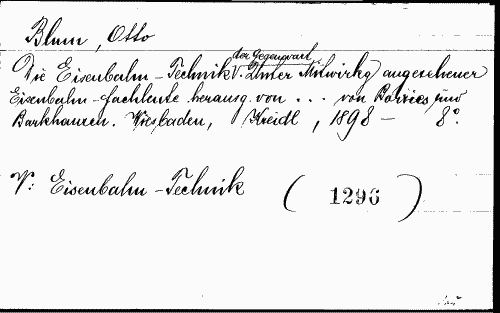 Blum, Otto
Die Eisenbahn-Technik der Gegenwart. Unter Mitwirkg angesehener
Eisenbahn-fachleute herausg. von ... von Borries und
Barkhausen. Wiesbaden, Kreidl, 1898 - 8°.
V: Eisenbahn-Technik (1296)